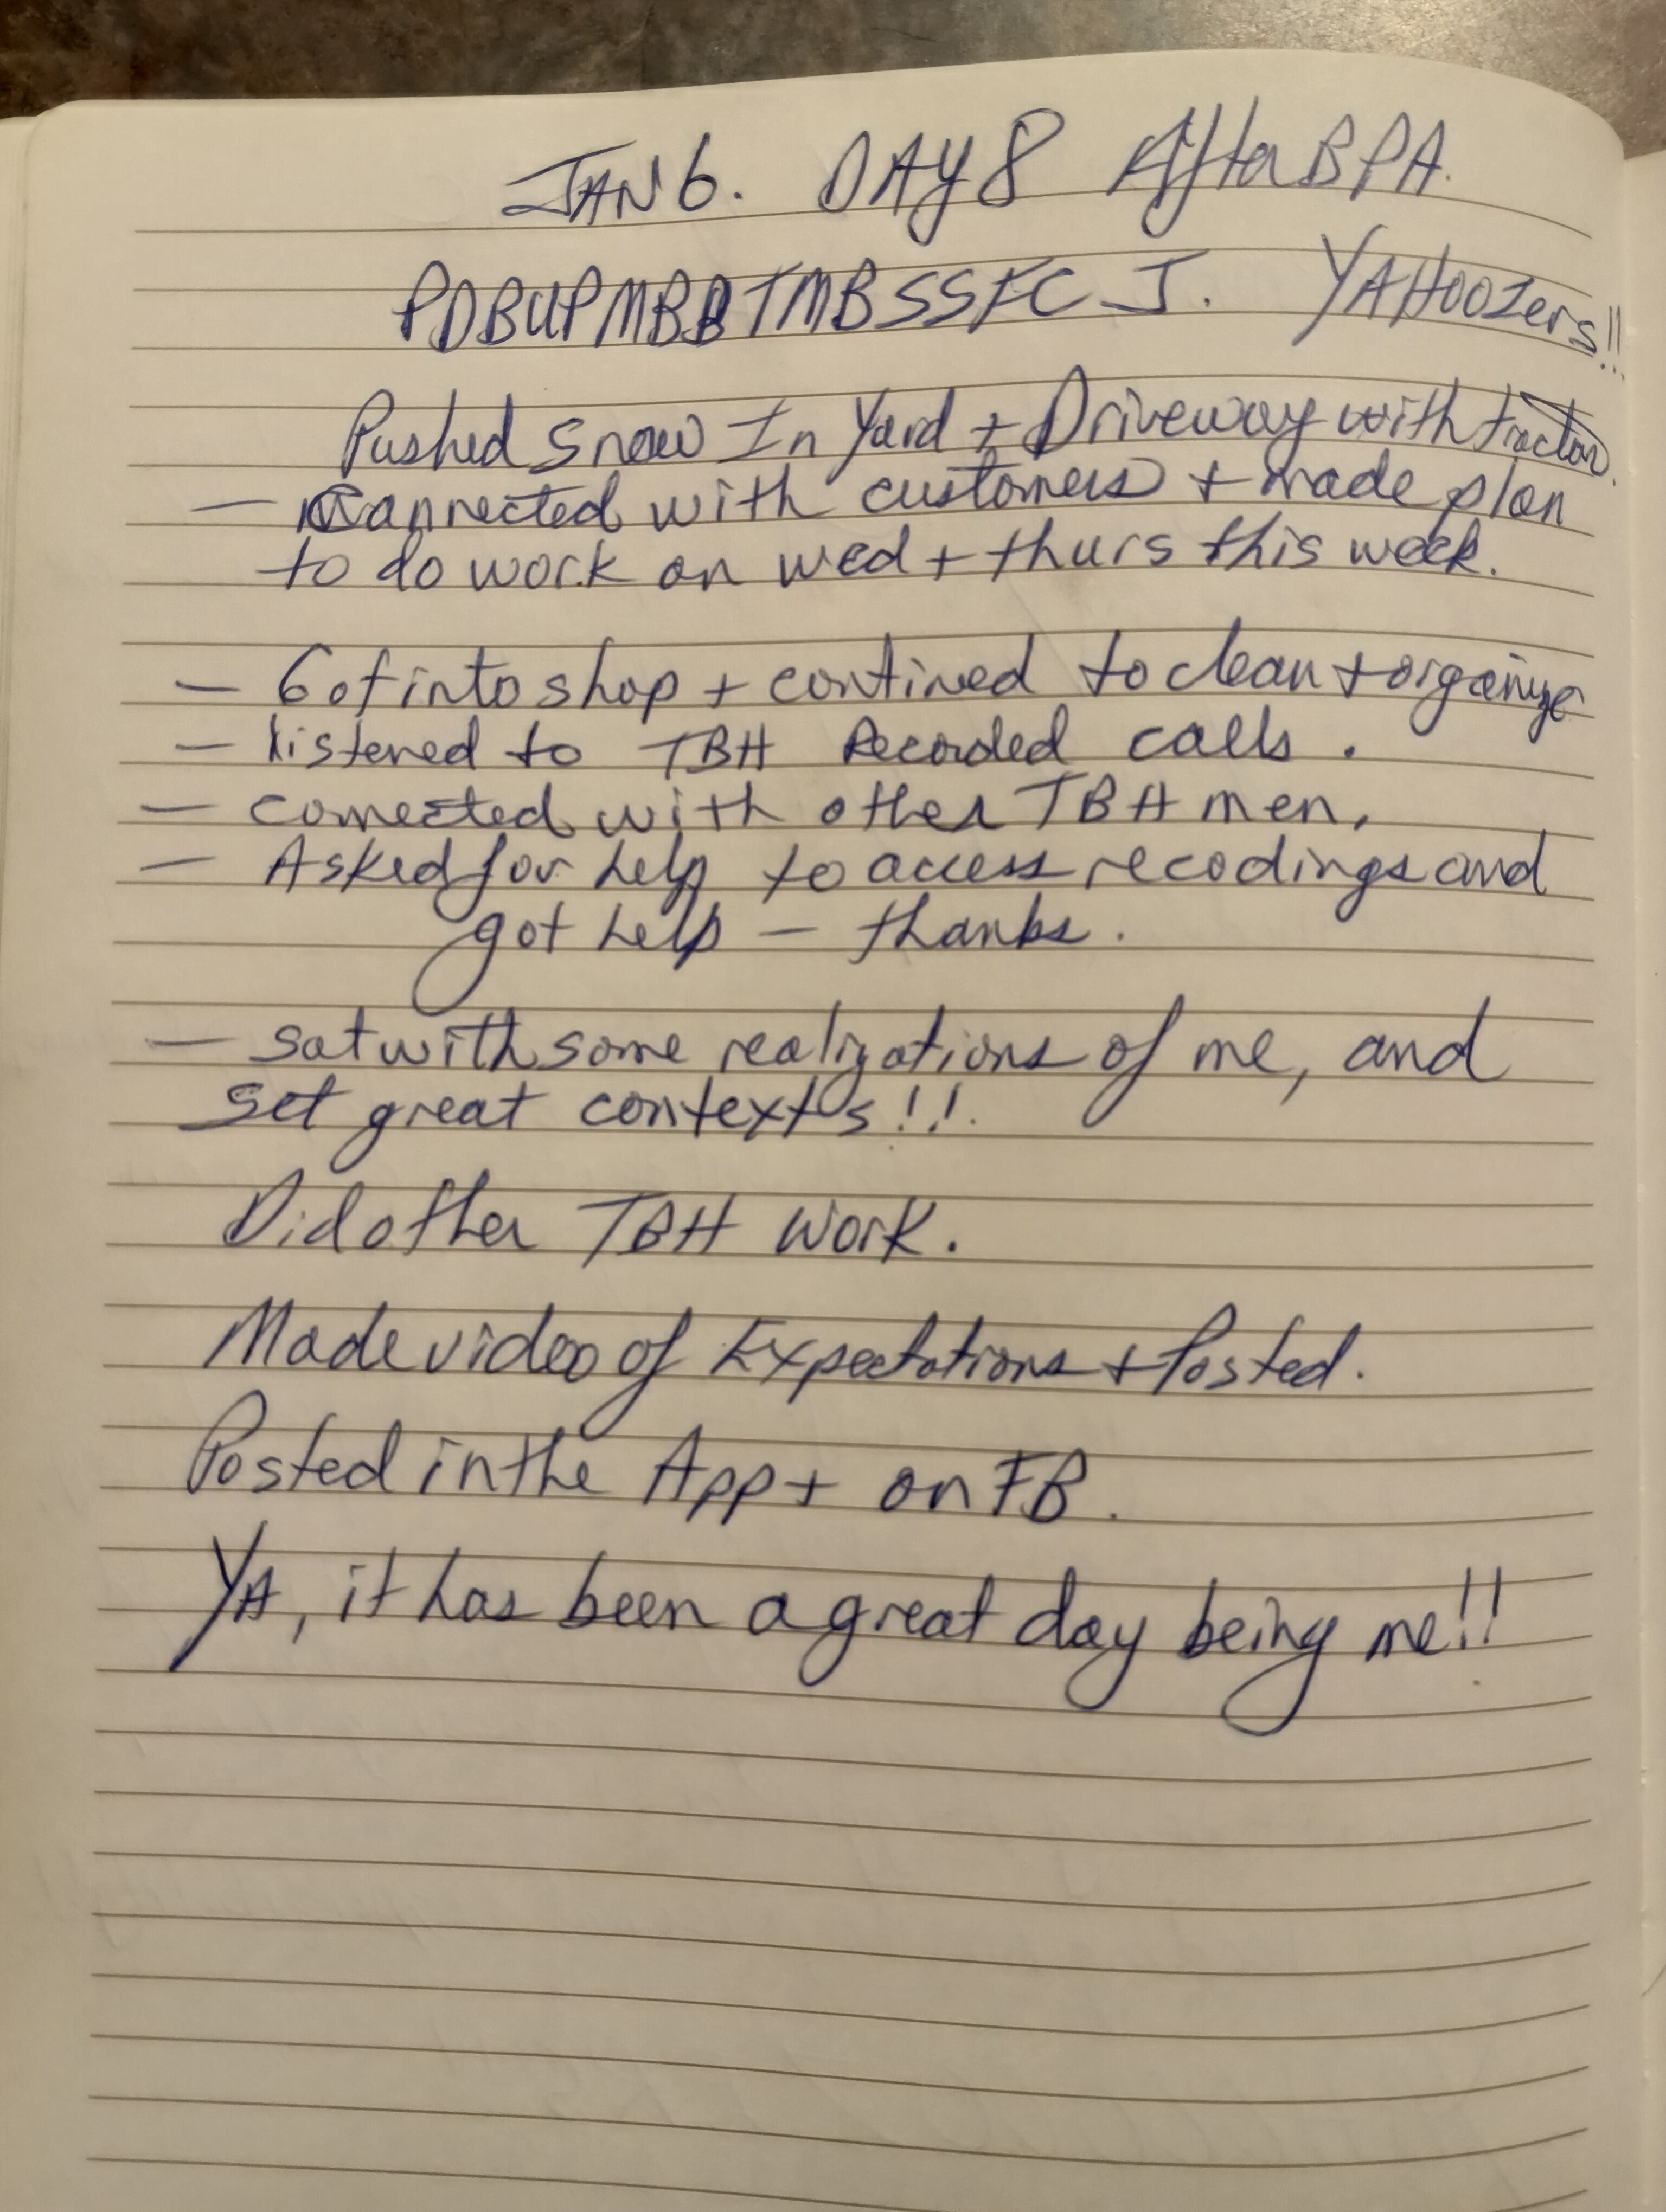 JAN 6. DAY 8 After BPA.
PDBUPMBBTMBSSFC J. YAHOOZers!!
Pushed snow In Yard + Driveway with tractor.
— Connected with customers + made plan
to do work on wed + thurs this week.
— Got into shop + contined to clean + organize
— Listened to TBH Recorded calls.
— connected with other TBH men,
— Asked for help to access recodings and
got help — thanks.
— sat with some realizations of me, and
set great contexts!!
Did other TBH work.
Made video of Expectations + Posted.
Posted in the App + on FB.
YA, it has been a great day being me!!